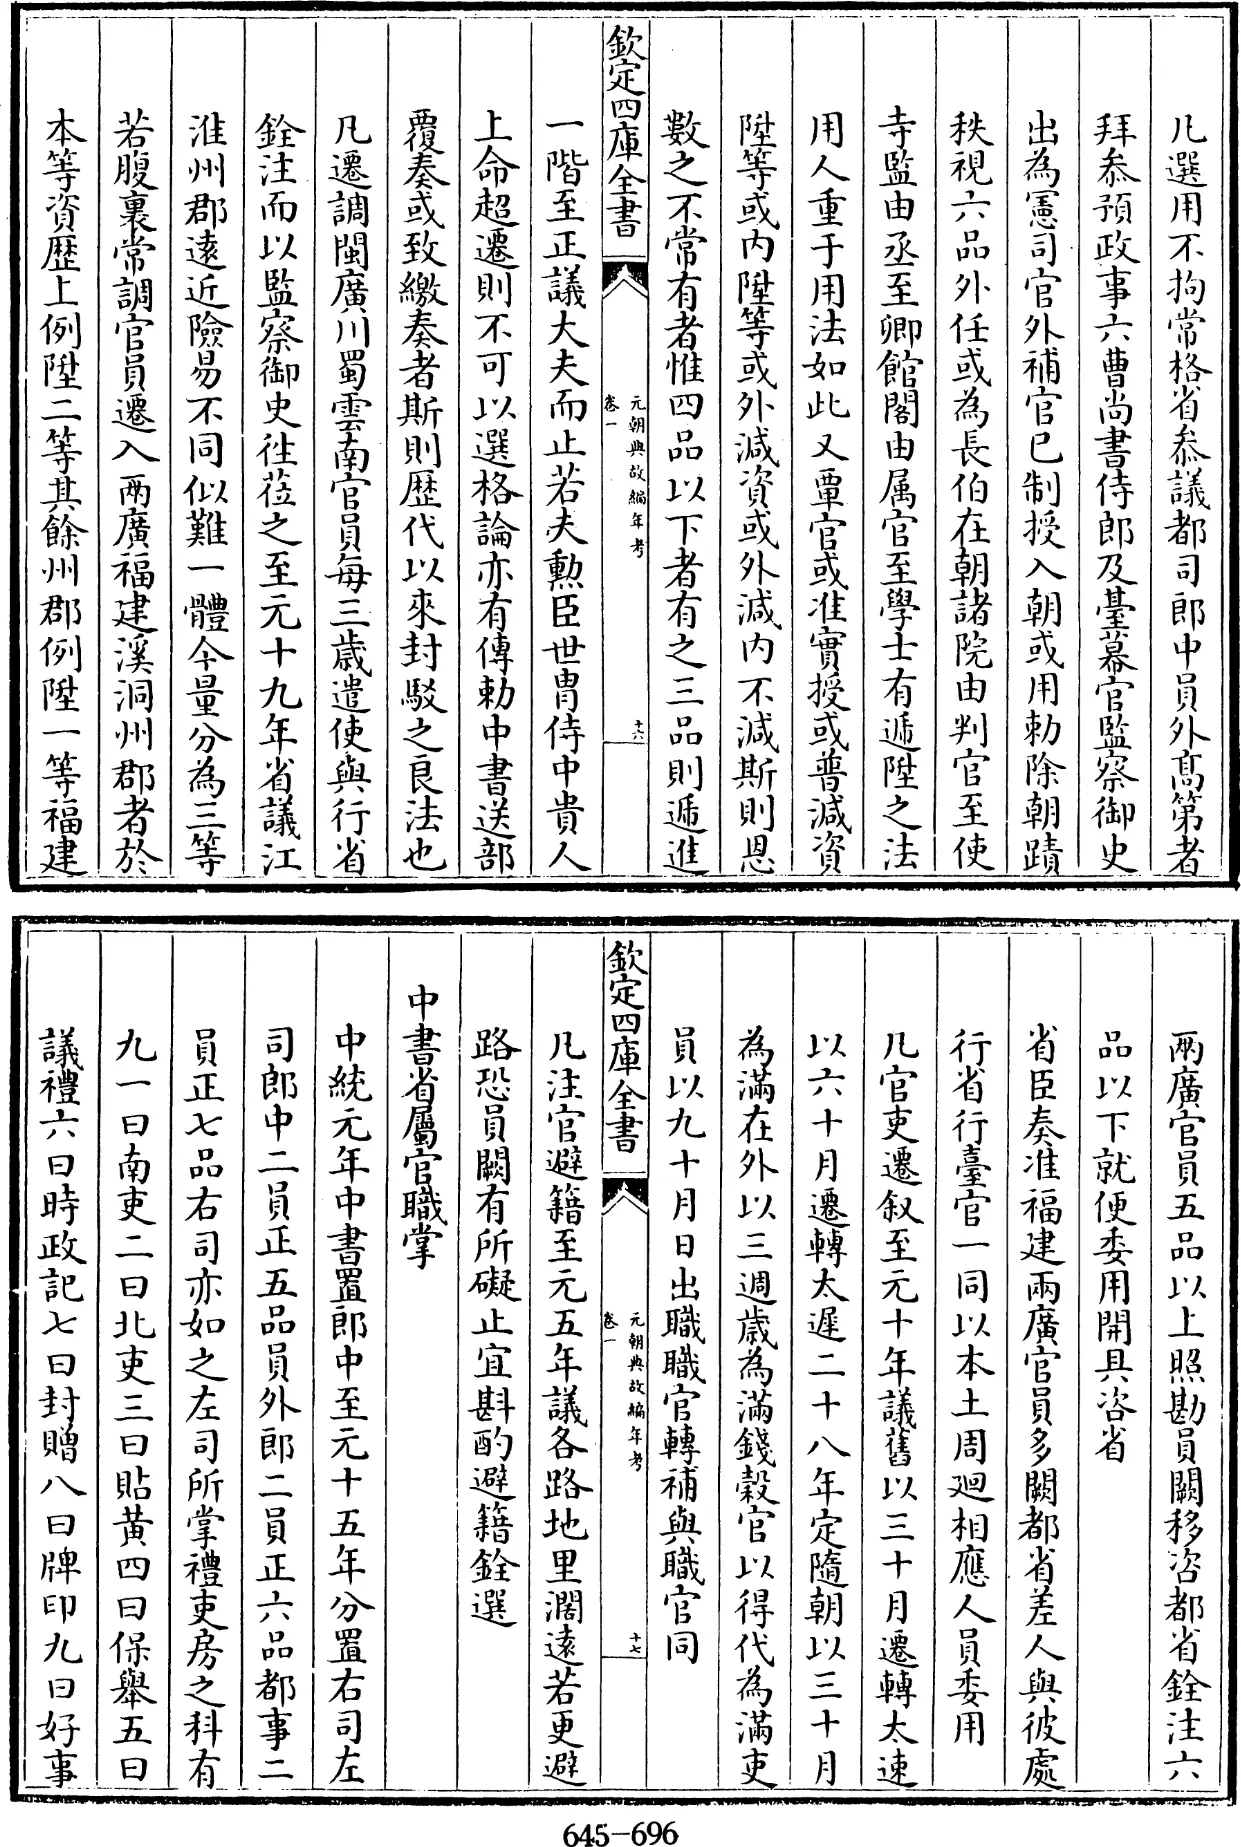 凡選用不拘常格省叅議都司郎中員外髙第者
拜叅預政事六曹尚書侍郎及䑓幕官監察御史
出為憲司官外補官已制授入朝或用勅除朝蹟
秩視六品外任或為長伯在朝諸院由判官至使
寺監由丞至卿館閣由属官至學士有遞陞之法
用人重于用法如此又覃官或准實授或普減資
陞等或内陞等或外減資或外減内不減斯則恩
數之不常有者惟四品以下者有之三品則遞進
欽定四庫全書
元朝典故編年考
卷一
十六
一階至正議大夫而止若夫勲臣世胄侍中貴人
上命超遷則不可以選格論亦有傳勅中書送部
覆奏或致繳奏者斯則歴代以來封駁之良法也
凡遷調閩廣川蜀雲南官員每三歲遣使與行省
銓注而以監察御史徃蒞之至元十九年省議江
淮州郡遠近險易不同似難一體今量分為三等
若腹裏常調官員遷入兩廣福建溪洞州郡者於
本等資歴上例陞二等其餘州郡例陞一等福建
兩廣官員五品以上照勘員闕移咨都省銓注六
品以下就便委用開具咨省
省臣奏准福建兩廣官員多闕都省差人與彼處
行省行臺官一同以本土周廻相應人員委用
凡官吏遷叙至元十年議舊以三十月遷轉太速
以六十月遷轉太遲二十八年定隨朝以三十月
為滿在外以三週歲為滿錢穀官以得代為滿吏
員以九十月日出職職官轉補與職官同
欽定四庫全書
元朝典故編年考
卷一
十七
凡注官避籍至元五年議各路地里濶遠若更避
路恐員闕有所礙止宜斟酌避籍銓選
中書省屬官職掌
中統元年中書置郎中至元十五年分置右司左
司郎中二員正五品員外郎二員正六品都事二
員正七品右司亦如之左司所掌禮吏房之科有
九一曰南吏二曰北吏三曰貼黄四曰保舉五曰
議禮六曰時政記七曰封贈八曰牌印九曰好事
645-696